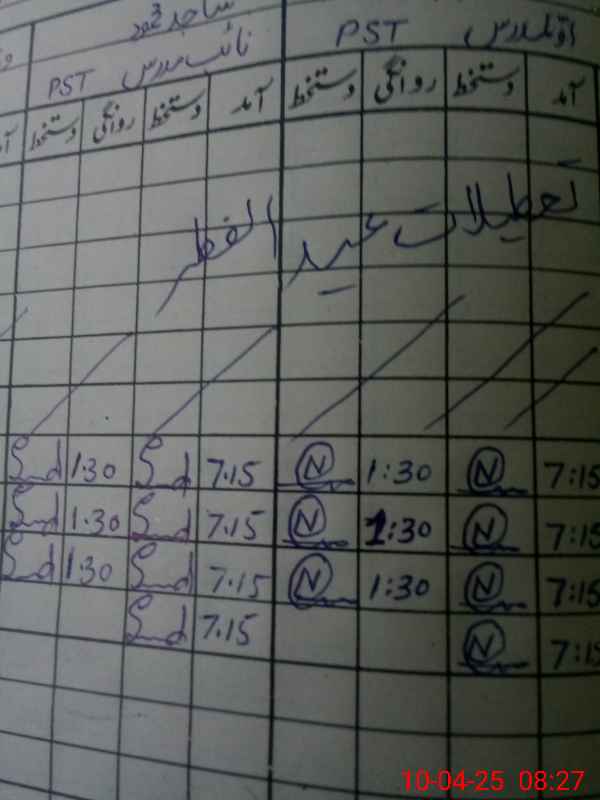 ساجد محمود
اول مدرس PST نائب مدرس PST
آمد دستخط روانگی دستخط آمد دستخط روانگی دستخط
تعطیلات عید الفطر
7:15 N 1:30 N 7.15 Sd 1.30 Sd
7:15 N 1:30 N 7.15 Sd 1.30 Sd
7:15 N 1:30 N 7.15 Sd 1.30 Sd
7:15 N 7.15 Sd
10-04-25 08:27